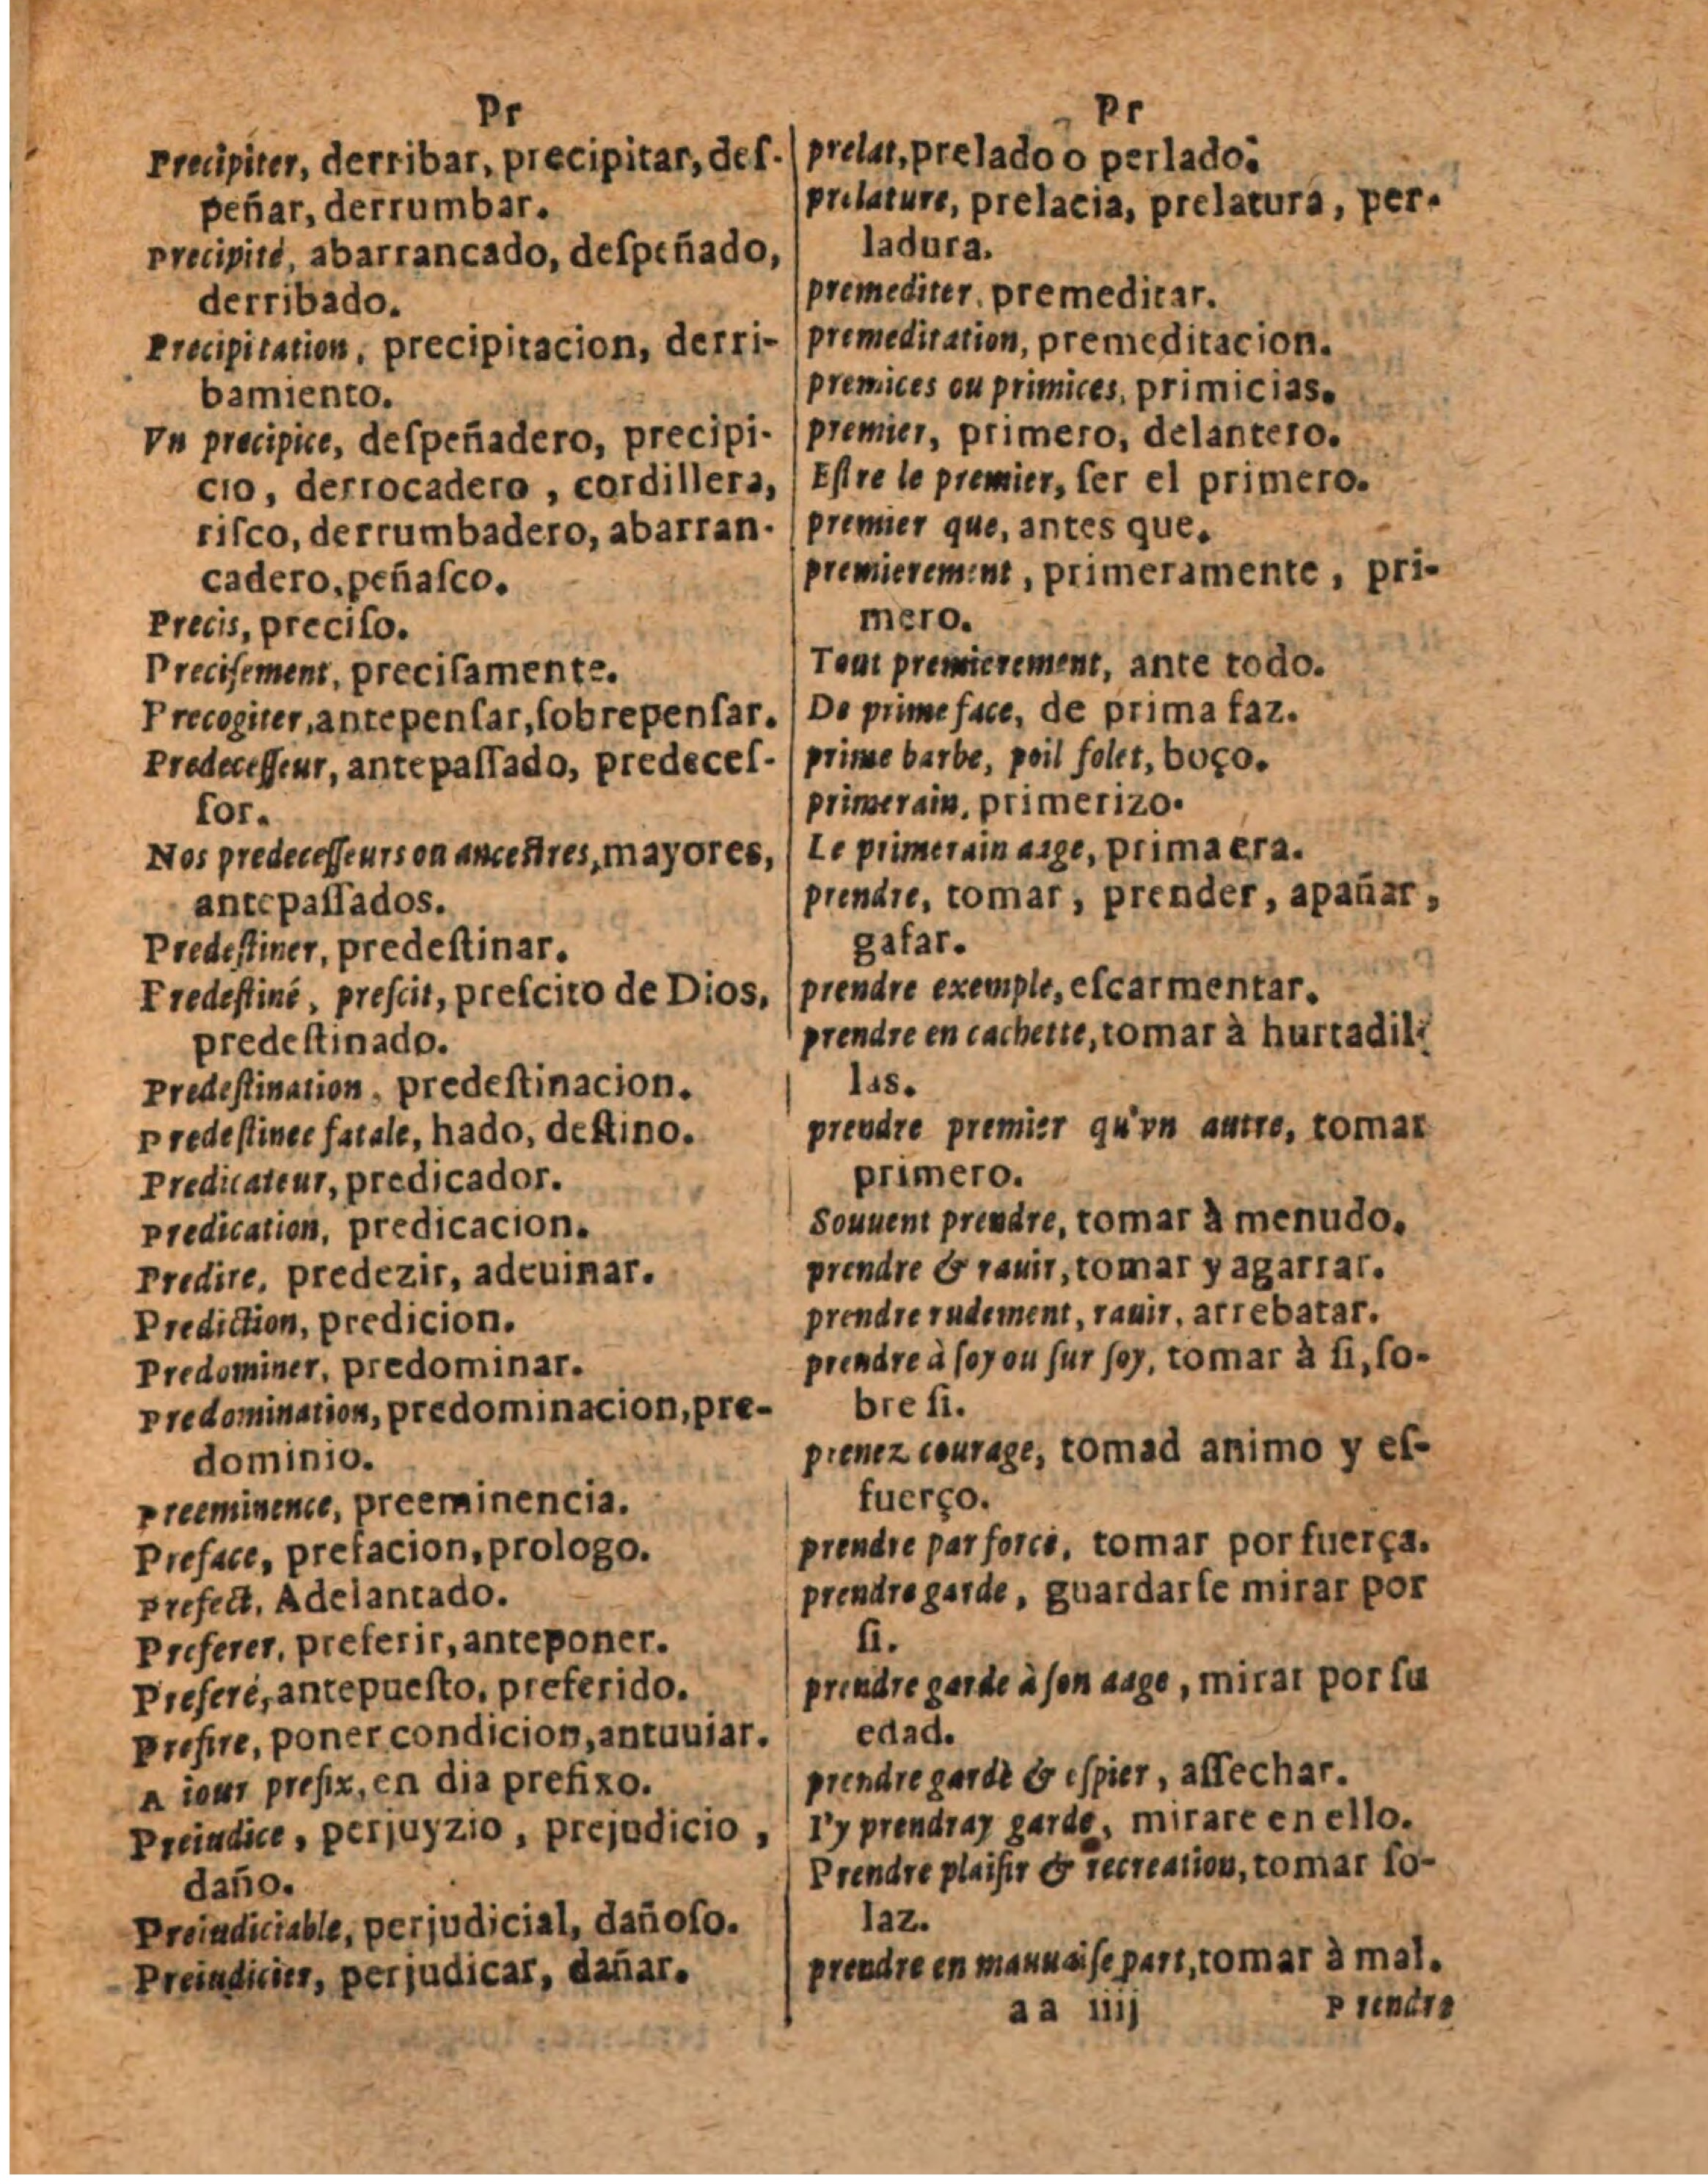 Pr
Precipiter, derribar, precipitar, deſ-
peñar, derrumbar.
precipité, abarrancado, deſpeñado,
derribado.
Precipitation, precipitacion, derri-
bamiento.
Vn precipice, deſpeñadero, precipi-
cio, derrocadero, cordillera,
riſco, derrumbadero, abarran-
cadero, peñaſco.
Precis, preciſo.
Preciſement, preciſamente.
Precogiter, antepenſar, ſobrepenſar.
Predeceſſeur, antepaſſado, predeceſ-
ſor.
Nos predeceſſeurs ou anceſtres, mayores,
antepaſſados.
Predeſtiner, predeſtinar.
Predeſtiné, preſcit, preſcito de Dios,
predeſtinado.
Predeſtination, predeſtinacion.
predeſtinee fatale, hado, deſtino.
Predicateur, predicador.
predication, predicacion.
Predire, predezir, adeuinar.
Prediction, predicion.
Predominer, predominar.
predomination, predominacion, pre-
dominio.
preeminence, preeminencia.
Preface, prefacion, prologo.
prefect, Adelantado.
Preferer, preferir, anteponer.
Preferé, antepueſto, preferido.
Prefire, poner condicion, antuuiar.
A iour prefix, en dia prefixo.
Preiudice, perjuyzio, prejudicio,
daño.
Preiudiciable, perjudicial, dañoſo.
Preiudicier, perjudicar, dañar.
Pr
prelat, prelado o perlado.
prelature, prelacia, prelatura, per-
ladura.
premediter, premeditar.
premeditation, premeditacion.
premices ou primices, primicias.
premier, primero, delantero.
Eſtre le premier, ſer el primero.
premier que, antes que.
premierement, primeramente, pri-
mero.
Tout premierement, ante todo.
De prime face, de prima faz.
prime barbe, poil folet, boço.
primerain, primerizo.
Le primerain aage, prima era.
prendre, tomar, prender, apañar,
gafar.
prendre exemple, eſcarmentar.
prendre en cachette, tomar à hurtadil-
las.
prendre premier qu'vn autre, tomar
primero.
Souuent prendre, tomar à menudo.
prendre & rauir, tomar y agarrar.
prendre rudement, rauir, arrebatar.
prendre à ſoy ou ſur ſoy, tomar à ſi, ſo-
bre ſi.
prenez courage, tomad animo y eſ-
fuerço.
prendre par force, tomar por fuerça.
prendre garde, guardarſe mirar por
ſi.
prendre garde à ſon aage, mirar por ſu
edad.
prendre garde & eſpier, aſſechar.
I'y prendray garde, mirare en ello.
Prendre plaiſir & recreation, tomar ſo-
laz.
prendre en mauuaiſe part, tomar à mal.
aa iiij Prendre